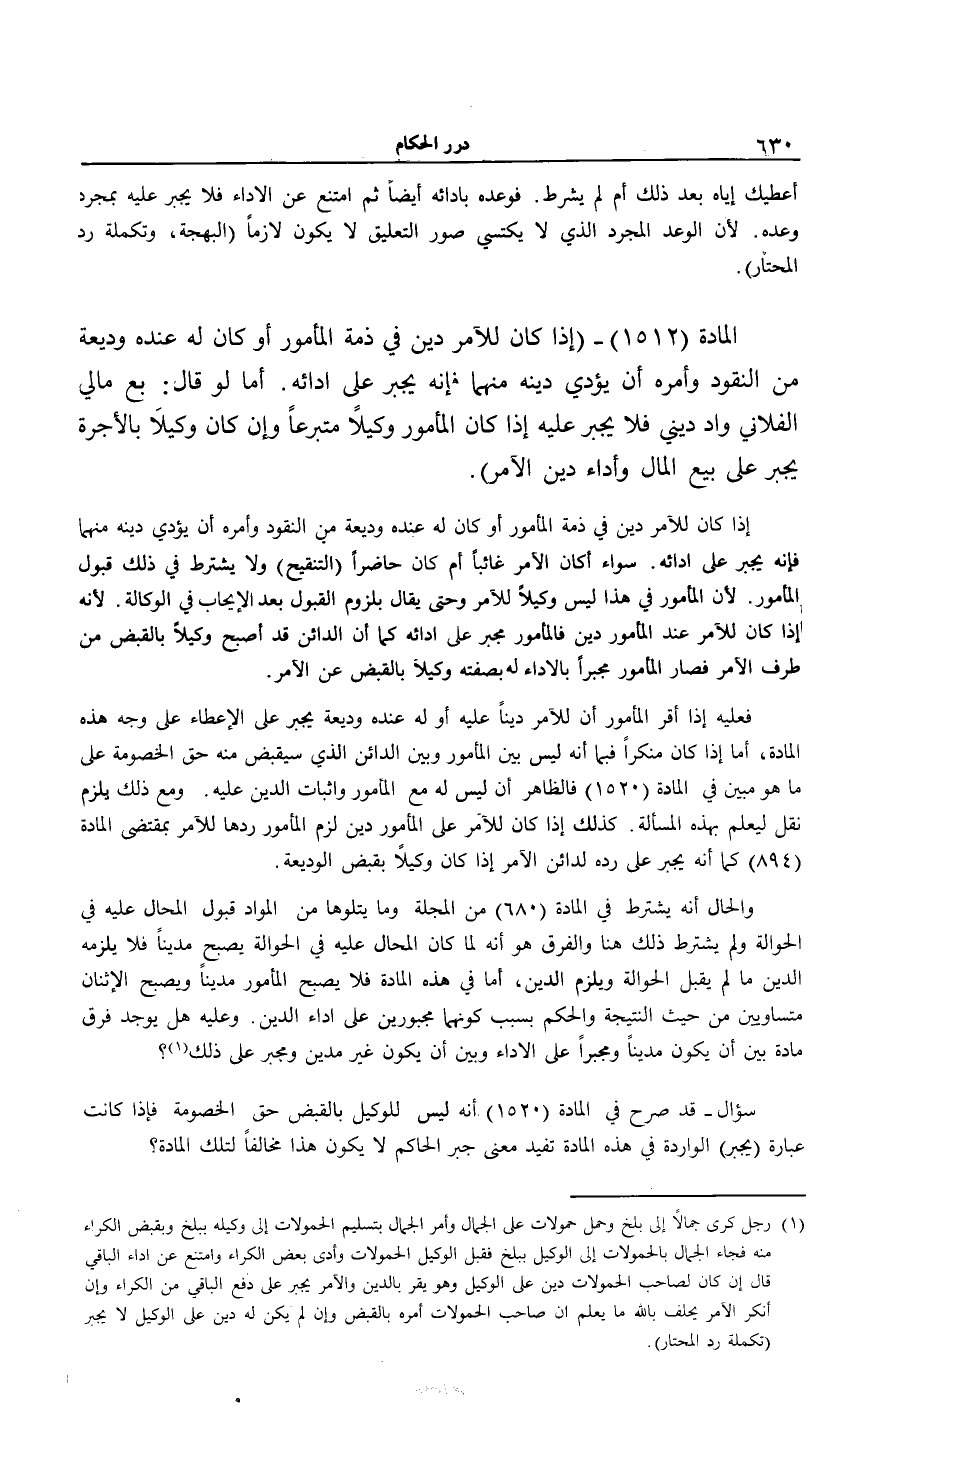 ٦٣٠ درر الحكام
أعطيك إياه بعد ذلك أم لم يشرط. فوعده بادائه أيضاً ثم امتنع عن الاداء فلا يجبر عليه بمجرد
وعده. لأن الوعد المجرد الذي لا يكتسي صور التعليق لا يكون لازماً (البهجة، وتكملة رد
المحتار).
المادة (١٥١٢) ـ (إذا كان للآمر دين في ذمة المأمور أو كان له عنده وديعة
من النقود وأمره أن يؤدي دينه منهما فإنه يجبر على ادائه. أما لو قال: بع مالي
الفلاني واد ديني فلا يجبر عليه إذا كان المأمور وكيلاً متبرعاً وإن كان وكيلاً بالأجرة
يجبر على بيع المال وأداء دين الآمر).
إذا كان للآمر دين في ذمة المأمور أو كان له عنده وديعة من النقود وأمره أن يؤدي دينه منهما
فإنه يجبر على ادائه. سواء أكان الآمر غائباً أم كان حاضراً (التنقيح) ولا يشترط في ذلك قبول
المأمور. لأن المأمور في هذا ليس وكيلاً للآمر وحتى يقال بلزوم القبول بعد الإيجاب في الوكالة. لأنه
إذا كان للآمر عند المأمور دين فالمأمور مجبر على ادائه كما أن الدائن قد أصبح وكيلاً بالقبض من
طرف الآمر فصار المأمور مجبراً بالاداء له بصفته وكيلاً بالقبض عن الآمر.
فعليه إذا أقر المأمور أن للآمر ديناً عليه أو له عنده وديعة يجبر على الإعطاء على وجه هذه
المادة، أما إذا كان منكراً فبما أنه ليس بين المأمور وبين الدائن الذي سيقبض منه حق الخصومة على
ما هو مبين في المادة (١٥٢٠) فالظاهر أن ليس له مع المأمور واثبات الدين عليه. ومع ذلك يلزم
نقل ليعلم بهذه المسألة. كذلك إذا كان للآمر على المأمور دين لزم المأمور ردها للآمر بمقتضى المادة
(٨٩٤) كما أنه يجبر على رده لدائن الآمر إذا كان وكيلاً بقبض الوديعة.
والحال أنه يشترط في المادة (٦٨٠) من المجلة وما يتلوها من المواد قبول المحال عليه في
الحوالة ولم يشترط ذلك هنا والفرق هو أنه لما كان المحال عليه في الحوالة يصبح مديناً فلا يلزمه
الدين ما لم يقبل الحوالة ويلزم الدين، أما في هذه المادة فلا يصبح المأمور مديناً ويصبح الإثنان
متساويين من حيث النتيجة والحكم بسبب كونهما مجبورين على اداء الدين. وعليه هل يوجد فرق
مادة بين أن يكون مديناً ومجبراً على الاداء وبين أن يكون غير مدين ومجبر على ذلك(١)؟
سؤال ـ قد صرح في المادة (١٥٢٠) أنه ليس للوكيل بالقبض حق الخصومة فإذا كانت
عبارة (يجبر) الواردة في هذه المادة تفيد معنى جبر الحاكم لا يكون هذا مخالفاً لتلك المادة؟
(١) رجل كرى جمالاً إلى بلخ وحمل حمولات على الجمال وأمر الجمال بتسليم الحمولات إلى وكيله ببلخ وبقبض الكراء
منه فجاء الجمال بالحمولات إلى الوكيل ببلخ فقبل الوكيل الحمولات وأدى بعض الكراء وامتنع عن اداء الباقي
قال إن كان لصاحب الحمولات دين على الوكيل وهو يقر بالدين والآمر يجبر على دفع الباقي من الكراء وإن
أنكر الآمر يحلف بالله ما يعلم ان صاحب الحمولات أمره بالقبض وإن لم يكن له دين على الوكيل لا يجبر
(تكملة رد المحتار).